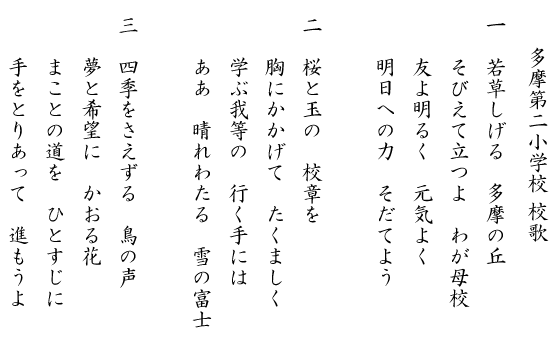 多摩第二小学校 校歌
一 若草しげる 多摩の丘
そびえて立つよ わが母校
友よ明るく 元気よく
明日への力 そだてよう
二 桜と玉の 校章を
胸にかかげて たくましく
学ぶ我等の 行く手には
ああ 晴れわたる 雪の富士
三 四季をさえずる 鳥の声
夢と希望に かおる花
まことの道を ひとすじに
手をとりあって 進もうよ